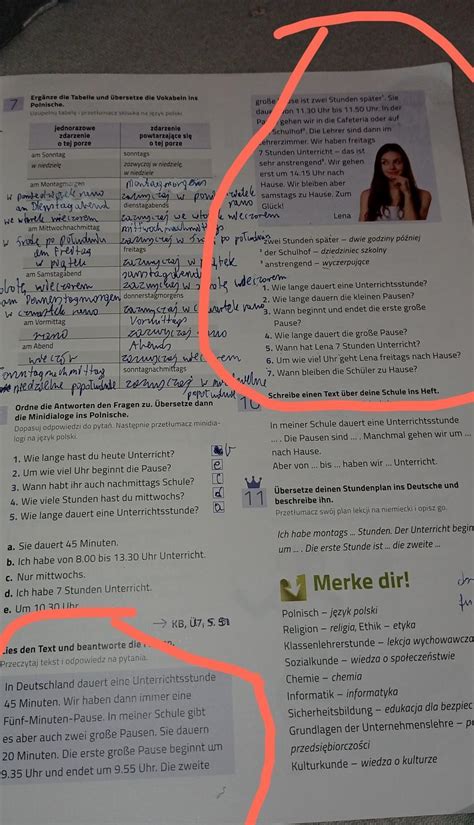 7 Ergänze die Tabelle und übersetze die Vokabeln ins
Polnische.
Uzupełnij tabelę i przetłumacz słówka na język polski.
jednorazowe
zdarzenie
o tej porze
zdarzenie
powtarzające się
o tej porze
am Sonntag
sonntags
w niedzielę
zazwyczaj w niedzielę
am Montagmorgen
montagmorgens
w poniedziałek rano
zazwyczaj w poniedziałek
rano
am Dienstagabend
dienstagabends
we wtorek wieczorem
zazwyczaj we wtorek wieczorem
am Mittwochnachmittag
mittwochnachmittags
w środę po południu
zazwyczaj w środę po południu
am Freitag
freitags
w piątek
zazwyczaj w piątek
am Samstagabend
samstagabends
sobotę wieczorem
zazwyczaj w sobotę wieczorem
am Donnerstagmorgen
donnerstagmorgens
w czwartek rano
zazwyczaj w czwartek rano
am Vormittag
Vormittags
rano
zazwyczaj rano
am Abend
Abends
wieczór
zazwyczaj wieczorem
Sonntagnachmittag
sonntagnachmittags
niedzielne popołudnie
zazwyczaj w niedzielne
popołudnie
Ordne die Antworten den Fragen zu. Übersetze dann
die Minidialoge ins Polnische.
Dopasuj odpowiedzi do pytań. Następnie przetłumacz minidia-
logi na język polski.
1. Wie lange hast du heute Unterricht?
b
2. Um wie viel Uhr beginnt die Pause?
e
3. Wann habt ihr auch nachmittags Schule?
c
4. Wie viele Stunden hast du mittwochs?
d
5. Wie lange dauert eine Unterrichtsstunde?
a
a. Sie dauert 45 Minuten.
b. Ich habe von 8.00 bis 13.30 Uhr Unterricht.
c. Nur mittwochs.
d. Ich habe 7 Stunden Unterricht.
e. Um 10.30 Uhr.
→ KB, Ü7, S. 51
Lies den Text und beantworte die Fragen.
Przeczytaj tekst i odpowiedz na pytania.
In Deutschland dauert eine Unterrichtsstunde
45 Minuten. Wir haben dann immer eine
Fünf-Minuten-Pause. In meiner Schule gibt
es aber auch zwei große Pausen. Sie dauern
20 Minuten. Die erste große Pause beginnt um
9.35 Uhr und endet um 9.55 Uhr. Die zweite
große Pause ist zwei Stunden später*. Sie
dauert von 11.30 Uhr bis 11.50 Uhr. In der
Pause gehen wir in die Cafeteria oder auf
Schulhof*. Die Lehrer sind dann im
Lehrerzimmer. Wir haben freitags
7 Stunden Unterricht – das ist
sehr anstrengend*. Wir gehen
erst um 14.15 Uhr nach
Hause. Wir bleiben aber
samstags zu Hause. Zum
Glück!
Lena
zwei Stunden später – dwie godziny później
der Schulhof – dziedziniec szkolny
anstrengend – wyczerpujące
1. Wie lange dauert eine Unterrichtsstunde?
2. Wie lange dauern die kleinen Pausen?
3. Wann beginnt und endet die erste große
Pause?
4. Wie lange dauert die große Pause?
5. Wann hat Lena 7 Stunden Unterricht?
6. Um wie viel Uhr geht Lena freitags nach Hause?
7. Wann bleiben die Schüler zu Hause?
10 Schreibe einen Text über deine Schule ins Heft.
In meiner Schule dauert eine Unterrichtsstunde
... . Die Pausen sind ... . Manchmal gehen wir um ...
nach Hause.
Aber von ... bis ... haben wir ... Unterricht.
11 Übersetze deinen Stundenplan ins Deutsche und
beschreibe ihn.
Przetłumacz swój plan lekcji na niemiecki i opisz go.
Ich habe montags ... Stunden. Der Unterricht beginn
um ... . Die erste Stunde ist ... die zweite ...
Merke dir!
Polnisch – język polski
Religion – religia, Ethik – etyka
Klassenlehrerstunde – lekcja wychowawcza
Sozialkunde – wiedza o społeczeństwie
Chemie – chemia
Informatik – informatyka
Sicherheitsbildung – edukacja dla bezpiec
Grundlagen der Unternehmenslehre – p
przedsiębiorczości
Kulturkunde – wiedza o kulturze